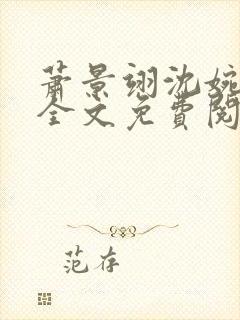 萧景翊沈婉
全文免費閱
范存